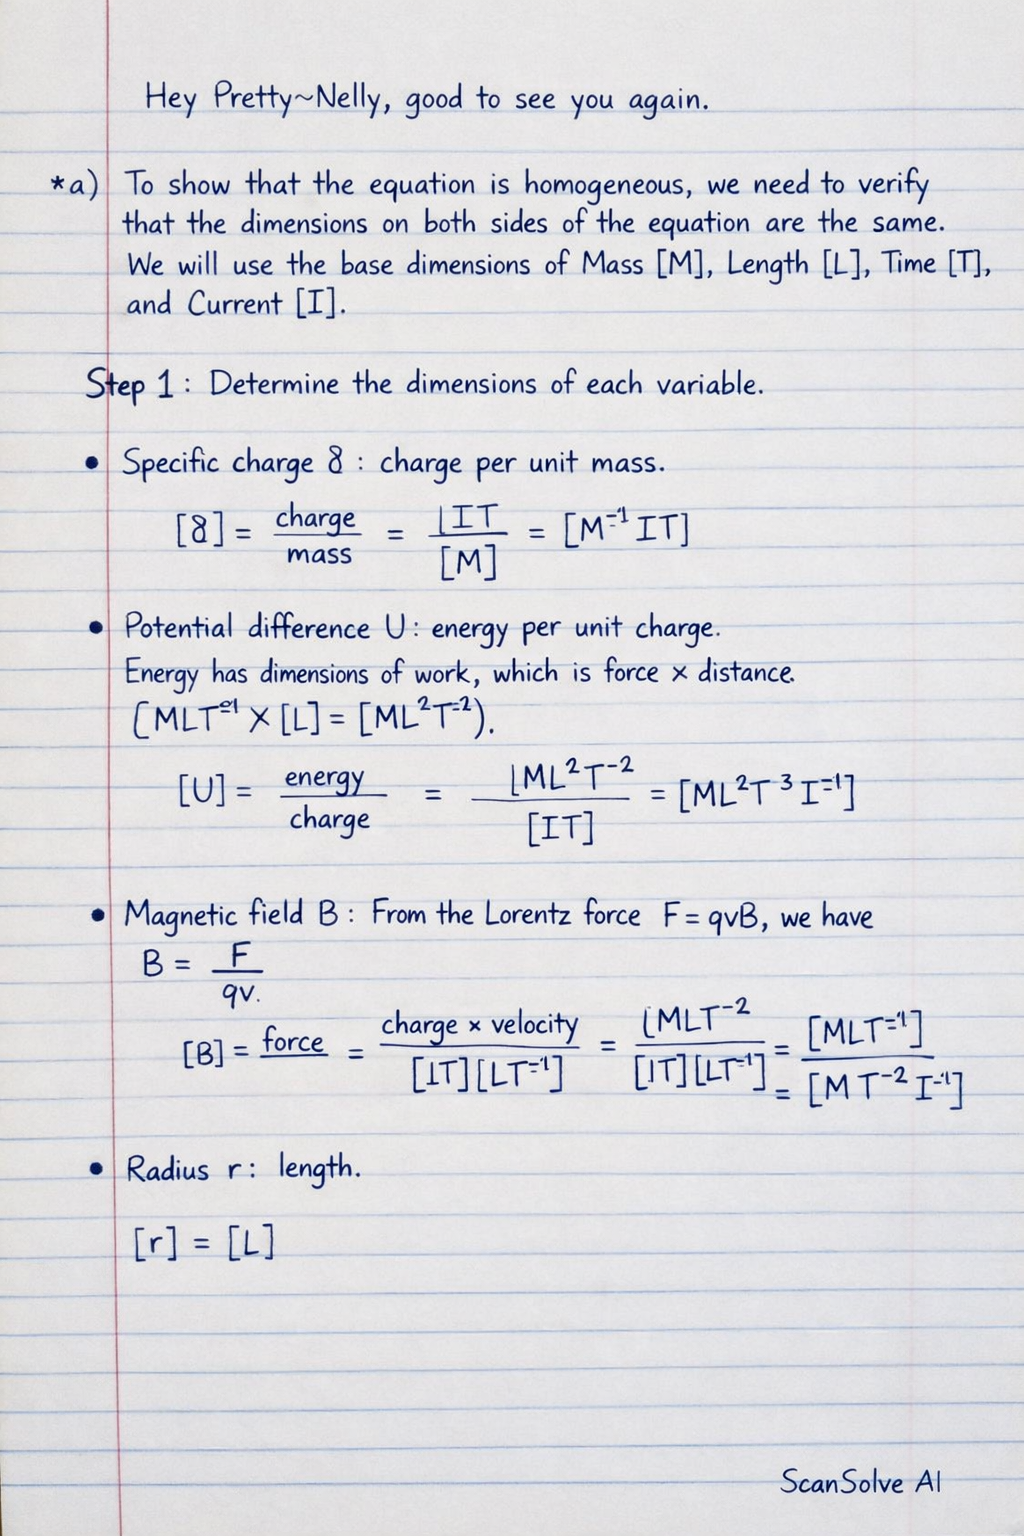 Hey Pretty~Nelly, good to see you again.
*a) To show that the equation is homogeneous, we need to verify
that the dimensions on both sides of the equation are the same.
We will use the base dimensions of Mass [M], Length [L], Time [T],
and Current [I].
Step 1: Determine the dimensions of each variable.
• Specific charge 8 : charge per unit mass.
[8] = charge/mass = ⌊IT/[M] = [M⁻¹ IT]
• Potential difference U: energy per unit charge.
Energy has dimensions of work, which is force × distance.
(MLT⁼¹ × [L] = [ML²T⁼²).
[U] = energy/charge = ⌊ML²T⁻²/[IT] = [ML²T ³ I⁼¹]
• Magnetic field B: From the Lorentz force F = qvB, we have
B = F/qv.
[B] = force = charge × velocity/[IT][LT⁼¹] = [MLT⁻²/[IT][LT⁻¹] = [MLT⁼¹]
= [M T⁻² I⁻¹]
• Radius r: length.
[r] = [L]
ScanSolve AI